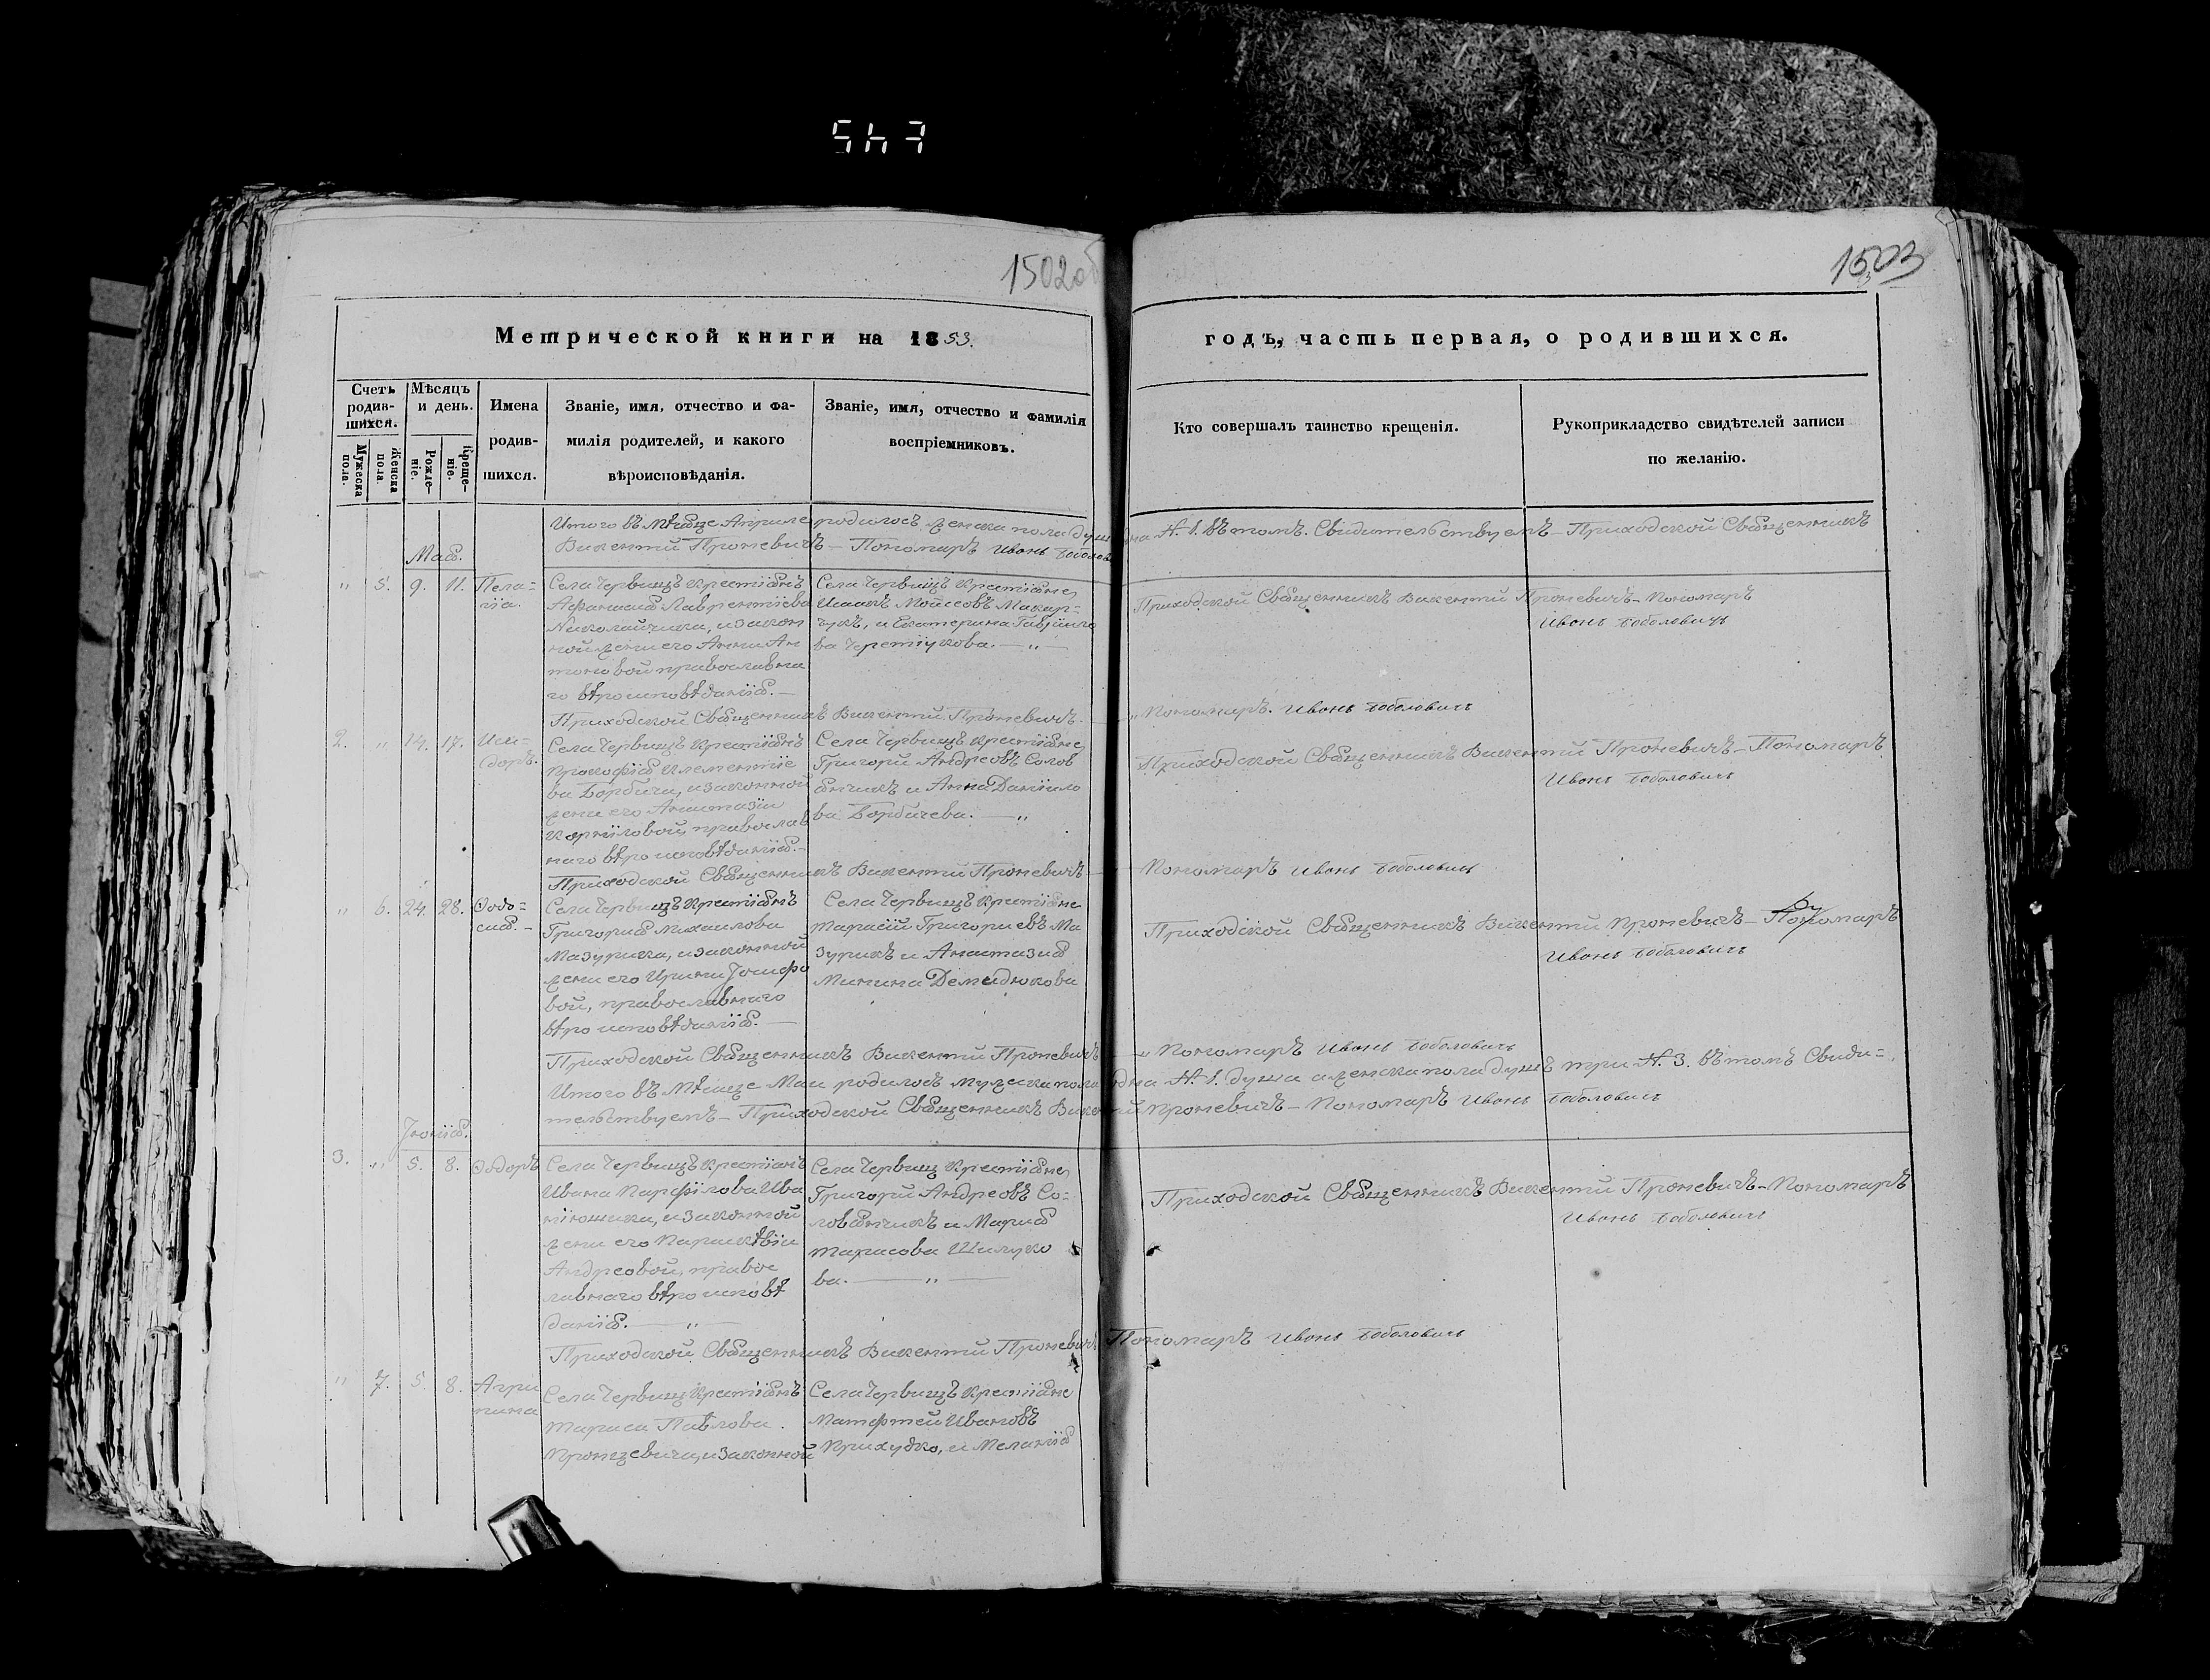 547
1502об
1503
Метрической книги на 1853.
годъ, часть первая, о родившихся.
Счетъ родив-шихся.
Мужеска пола.
Женска пола.
Мѣсяцъ и день.
Рожде-ніе.
Креще-ніе.
Имена
родив-
шихся.
Званіе, имя, отчество и фа-
милія родителей, и какого
вѣроисповѣданія.
Званіе, имя, отчество и фамилія
воспріемниковъ.
Кто совершалъ таинство крещенія.
Рукоприкладство свидѣтелей записи
по желанію.
Итого въ мѣсяце Апреле родилось женска пола душ на №. 1. въ томъ. Свидительствуемъ – Приходской Священникъ
Викентий Проневичъ – Пономаръ Иванъ Боболович
Мая.
" 5. 9. 11. Пела=
гія.
Села Червищъ Крестіянъ
Афанасія Лаврентіева
Николайчика, и закон
ной жени его Анни Ан
тоновой православна
го вѣроисповѣданія. —
Села Червищъ Крестіяне,
Исаакъ Мойсеовъ Макар=
чукъ, и Екатерина Гаврило
ва Теретіукова. — " —
Приходской Священникъ Викентий Проневичъ – Пономаръ
Иванъ Боболовичъ
Приходской Священникъ Викентий Проневичъ. — " Пономаръ. Иванъ Боболовичъ
2. " 14. 17. Иси=
доръ.
Села Червищъ Крестіянъ
Прокофія Клементіе
ва Борбича, и законной
жени его Анастазіи
Корніловой, православ
наго вѣроисповѣданія. –
Села Червищъ Крестіяне,
Григорій Андреовъ Солов
янчикъ и Анна Даніило
ва Борбичева. — "
Приходской Священникъ Викентий Проневичъ – Пономаръ
Иванъ Боболовичъ
Приходской Священникъ Викентий Проневичъ — Пономаръ Иванъ Боболовичъ
" 6. 24. 28. Ѳодо=
сія. –
Села Червищъ Крестіянъ
Григорія Михаилова
Мазурика, и законной
жени его Ирини Іосифо
вой, православнаго
вѣроисповѣданія. —
Села Червищъ Крестіяне
Тарасій Григориевъ Ма
зурикъ и Анастазія
Минина Демидюкова
Приходской Священникъ Викентий Проневичъ – Пономаръ
Иванъ Боболовичъ
Приходской Священникъ Викентий Проневичъ — " Пономаръ Иванъ Боболовичъ
Итого въ мѣсяце Маи родилось мужеска пола одна №. 1. душа а женска пола душъ три №. 3. въ томъ Свиди=
тельствуемъ – Приходской Священникъ Викентий Проневичъ – Пономаръ Иванъ Боболовичъ
Іюнія.
3. " 5. 8. Ѳодоръ
Села Червищъ Крестіянъ
Ивана Парфілова Ива
нiюшика, и законной
жени его Параскѣвіи
Андреовой, правос
лавнаго вѣроисповѣ
данія. — " —
Села Червищ Крестіяне,
Григорій Андреовъ Со=
ловянчикъ и Марія
Тарасова Шилуко
ва. — " —
Приходской Священникъ Викентий Проневичъ – Пономаръ
Иванъ Боболовичъ
Приходской Священникъ Викентий Проневичъ Пономаръ Иванъ Боболовичъ
" 7. 5. 8. Агри
пина
Села Червищъ Крестіянъ
Тараса Павлова
Пронцевича, и законной
Села Червищъ Крестіяне
Матфтей Ивановъ
Прихудко, и Меланія